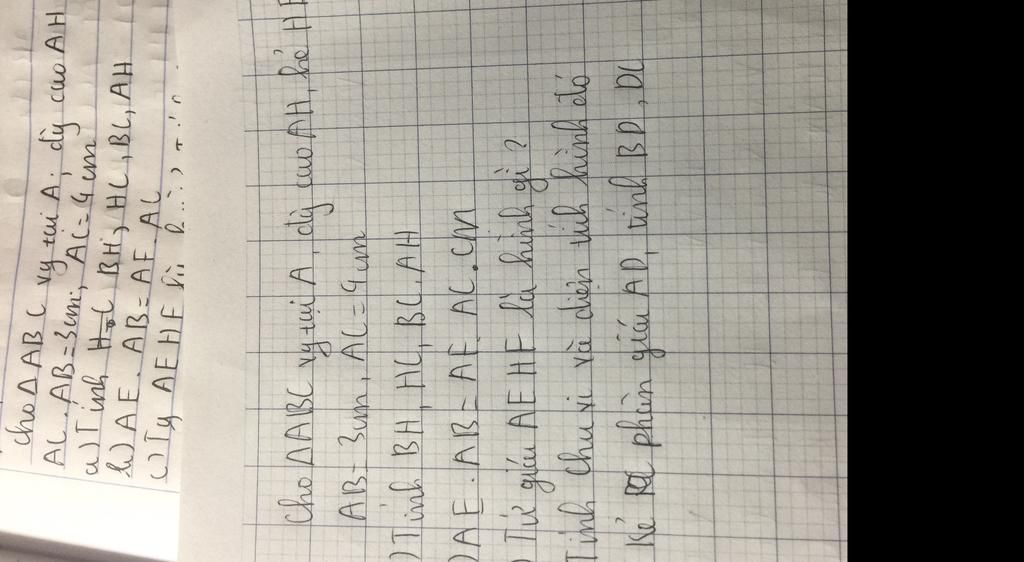 Cho Δ ABC vg tại A. đg cao AH
AC. AB=3cm, AC=4cm
a) Tính BH, HC, BC, AH
b) AE. AB = AF. AC
c) Tg AEHF là
Cho Δ ABC vg tại A, đg cao AH, kẻ HF
AB= 3cm, AC= 4cm
) Tính BH, HC, BC, AH
) AE. AB = AF. AC. CM
) Tứ giác AEHF là hình gì ?
Tính chu vi và diện tích hình đó
Kẻ phân giác AD, tính BD, DC